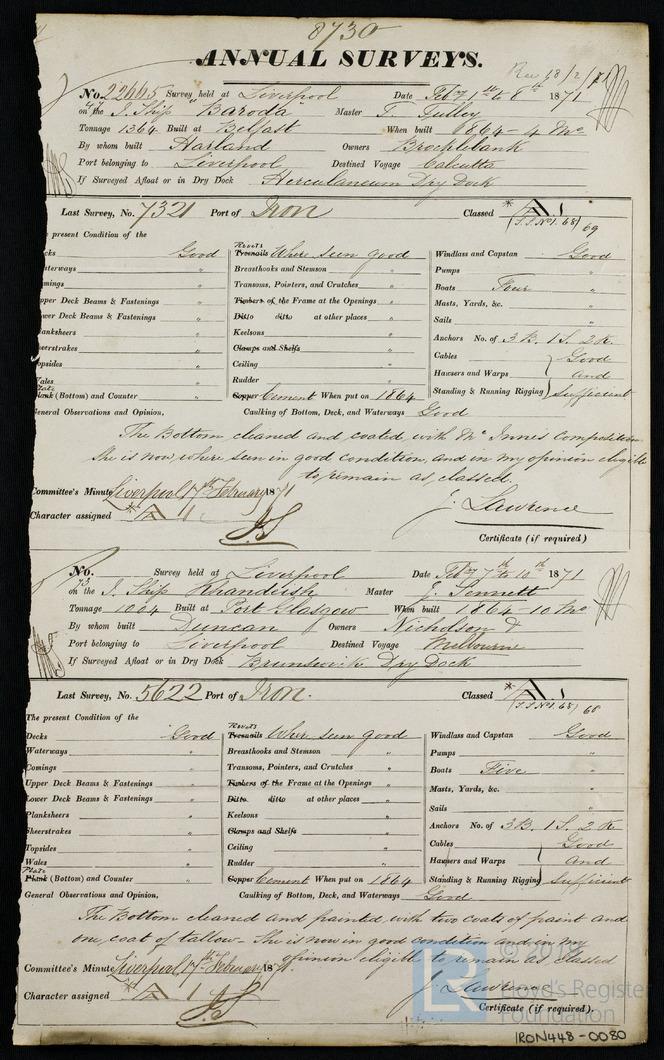 8730
ANNUAL SURVEYS.
Rec 18/2/71
No. 22665 Survey held at Liverpool Date Feby 1st to 6th 1871
on the I. Ship "Baroda" Master T. Tulley
Tonnage 1364 Built at Belfast When built 1864 - 4 Mo
By whom built Harland Owners Brocklebank
Port belonging to Liverpool Destined Voyage Calcutta
If Surveyed Afloat or in Dry Dock Herculaneum Dry Dock
Last Survey, No. 7321 Port of Iron Classed A 1
(S.S. No 1. 68) 69
e present Condition of the
cks Good Rivets Treenails Where seen good Windlass and Capstan Good
aterways " Breasthooks and Stemson " Pumps "
mings " Transoms, Pointers, and Crutches " Boats Four "
pper Deck Beams & Fastenings " Timbers of the Frame at the Openings " Masts, Yards, &c. "
wer Deck Beams & Fastenings " Ditto ditto at other places " Sails "
lanksheers " Keelsons " Anchors No. of 3 B. 1 S. 2 K.
heerstrakes " Clamps and Shelfs Cables Good
opsides " Ceiling " Hawsers and Warps and
ales " Rudder " Standing & Running Rigging Sufficient
Plate
Plank (Bottom) and Counter " Copper Cement When put on 1864
General Observations and Opinion, Caulking of Bottom, Deck, and Waterways Good
The Bottom cleaned and coated with Mc Innes Composition
She is now, where seen in good condition, and in my opinion eligible
to remain as, classed.
Committee's Minute Liverpool, 17th February 1871
J. Lawrence
Character assigned A 1
Certificate (if required)
No. 73 Survey held at Liverpool Date Feby 7th to 10th 1871
on the I. Ship Khandeish Master J. Sennett
Tonnage 1064 Built at Port Glasgow When built 1864 10 Mo
By whom built Duncan Owners Nicholson &
Port belonging to Liverpool Destined Voyage Melbourne
If Surveyed Afloat or in Dry Dock Brunswick Dry Dock
Last Survey, No. 5622 Port of Iron. Classed A 1
(S.S. No 1. 68) 68
The present Condition of the
Decks Good Rivets Treenails Where seen good Windlass and Capstan Good
Waterways " Breasthooks and Stemson " Pumps "
Comings " Transoms, Pointers, and Crutches " Boats Five "
Upper Deck Beams & Fastenings " Timbers of the Frame at the Openings " Masts, Yards, &c. "
Lower Deck Beams & Fastenings " Ditto ditto at other places " Sails "
Planksheers " Keelsons " Anchors No. of 3 B. 1 S. 2 K
Sheerstrakes " Clamps and Shelfs Cables Good
Topsides " Ceiling " Hawsers and Warps and
Wales " Rudder " Standing & Running Rigging Sufficient
Plate
Plank (Bottom) and Counter " Copper Cement When put on 1864
General Observations and Opinion, Caulking of Bottom, Deck, and Waterways Good
The Bottom cleaned and painted with two coats of paint and
one coat of tallow - She is now in good condition and in my
opinion eligible to remain as classed
Committee's Minute Liverpool, 17th February 1871.
J. Lawrence
Character assigned A 1
Certificate (if required).
LR
Lloyd's Register
Foundation
IRON448-0080